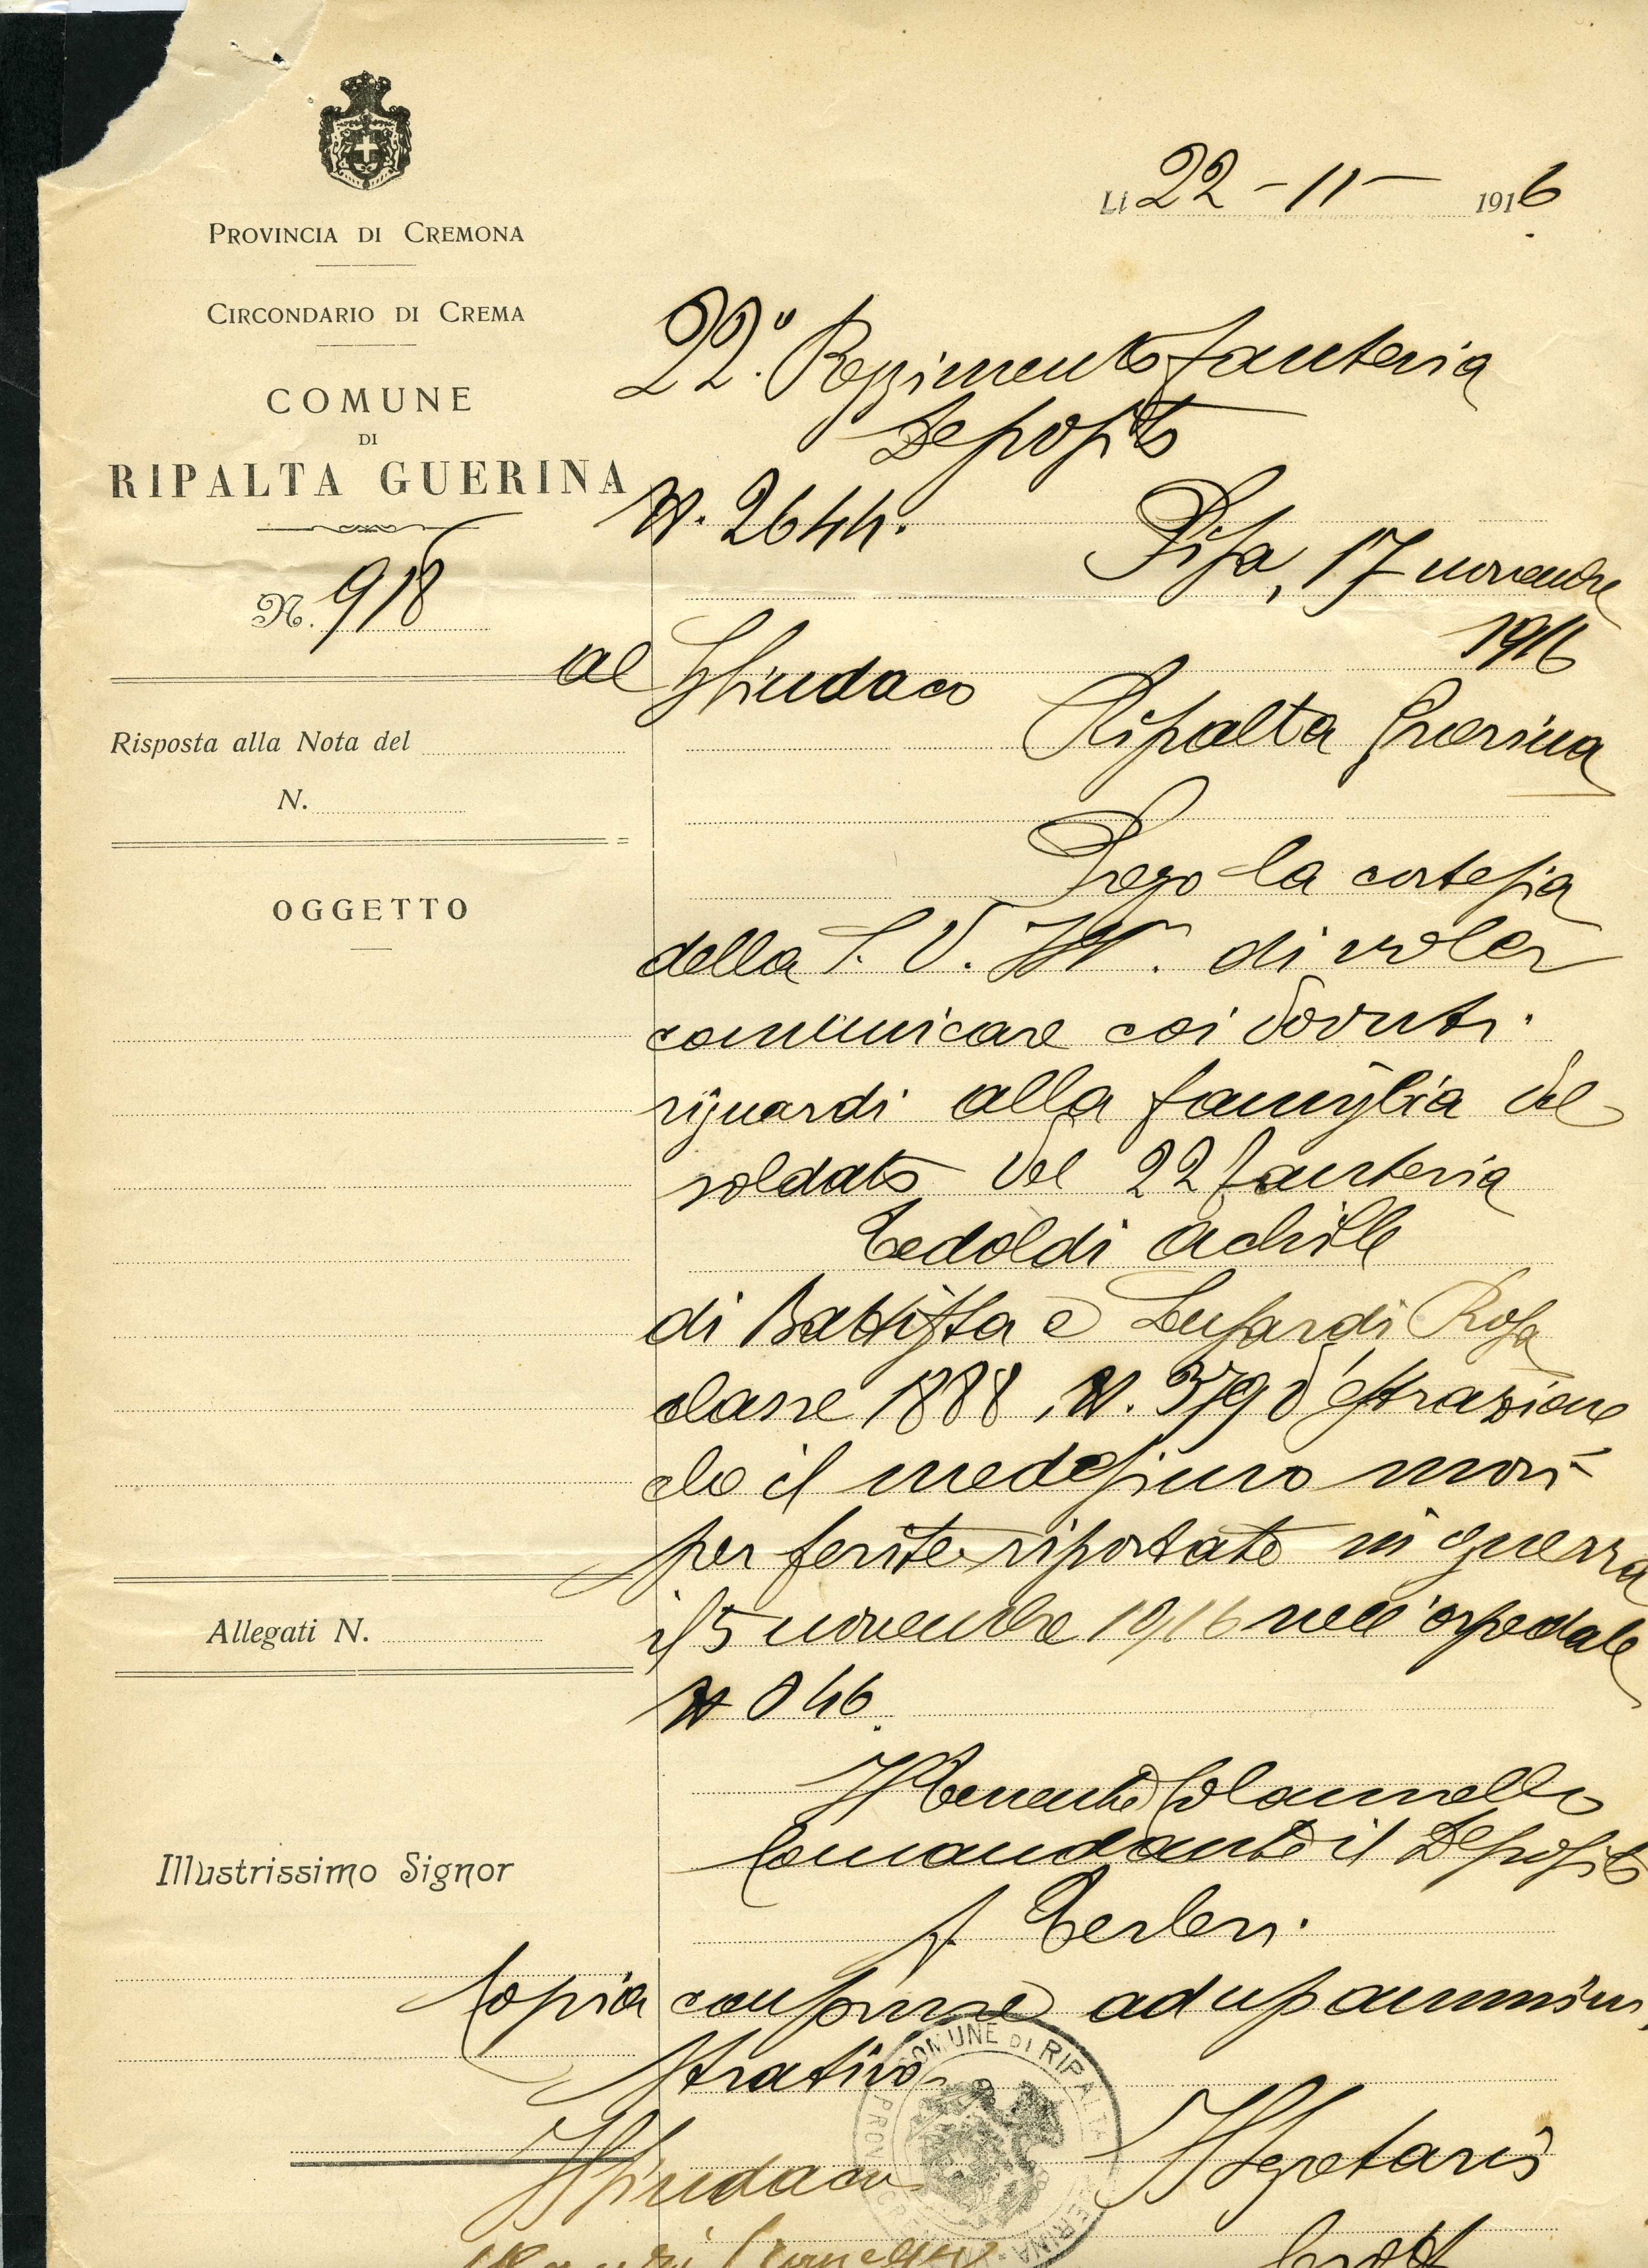 PROVINCIA DI CREMONA
CIRCONDARIO DI CREMA
COMUNE
DI
RIPALTA GUERINA
N. 918
Risposta alla Nota del
N.
OGGETTO
Allegati N.
Illustrissimo Signor
Li 22-11-1916
22º Reggimento fanteria
Deposito
N. 2644.
Pisa, 17 novembre
1916
al Sindaco
Ripalta Guerina
Prego la cortesia
della S. V. Ill. di voler
comunicare coi dovuti
riguardi alla famiglia del
soldato del 22 fanteria
Tedoldi Achille
di Battista e Lupardi Rosa
classe 1888, N. 379 d'estrazione
che il medesimo morì
per ferite riportate in guerra
il 5 novembre 1916 nell'ospedale
N 046.
Il Tenente Colonnello
Comandante il Deposito
f.
Copia conforme ad uso ammini
strativo
Il Sindaco
Il Segretario
COMUNE DI RIPALTA GUERINA